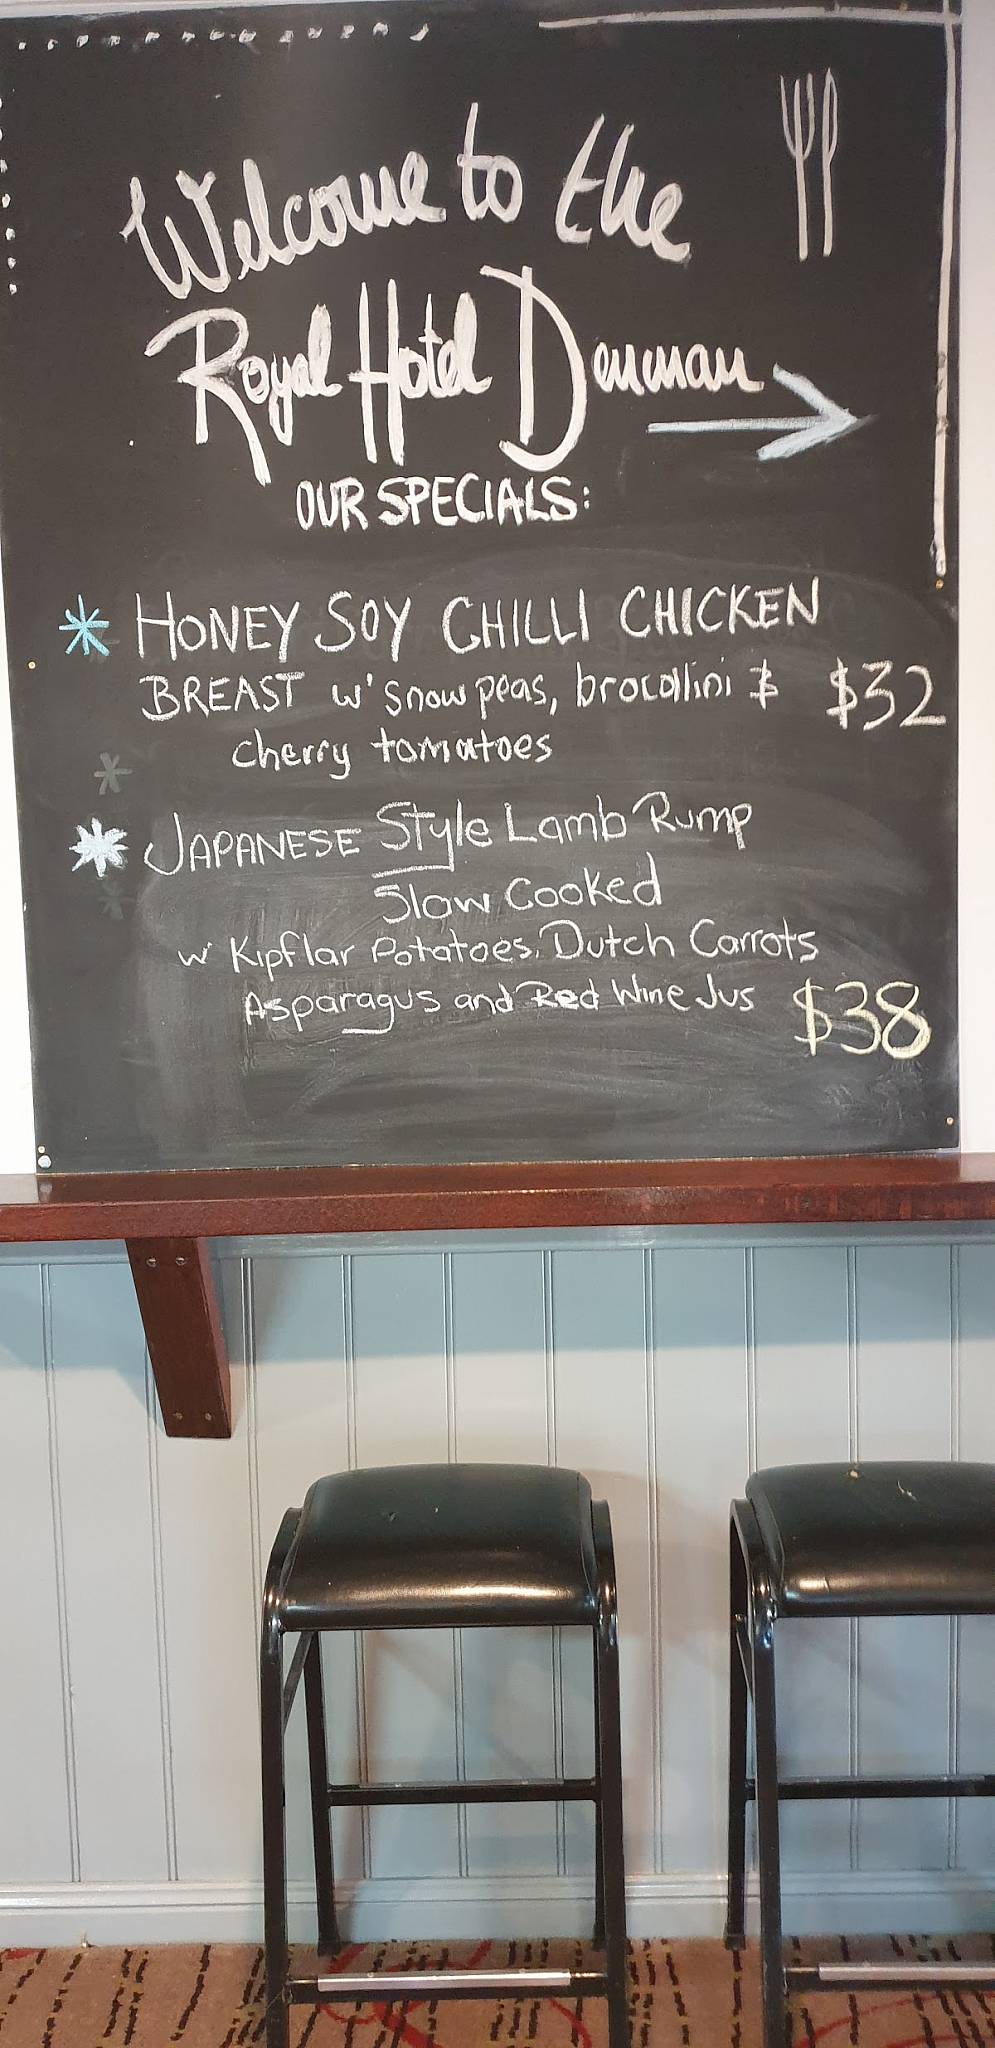 Welcome to the
Royal Hotel Denman
OUR SPECIALS:
HONEY SOY CHILLI CHICKEN
BREAST w' snow peas, brocollini &
$32
cherry tomatoes
JAPANESE Style Lamb Rump
Slow Cooked
w' Kipflar Potatoes, Dutch Carrots
Asparagus and Red Wine Jus
$38